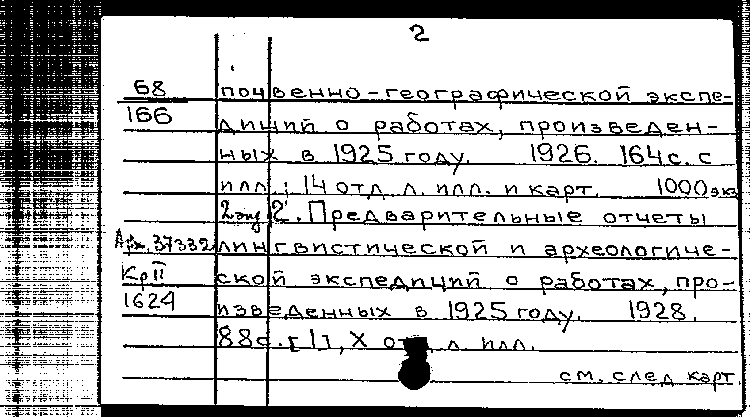 2
68 почвенно-географической экспе-
166 диций о работах, произведен-
ных в 1925 году. 1926. 164с. с
илл.; 14 отд. л. илл. и карт. 1000 экз
2 экз 2. Предварительные отчеты
Арх. 37332 лингвистической и археологиче-
Кр II ской экспедиций о работах, про-
1624 изведенных в 1925 году. 1928.
88с. [1], X отд. л. илл.
см. след карт